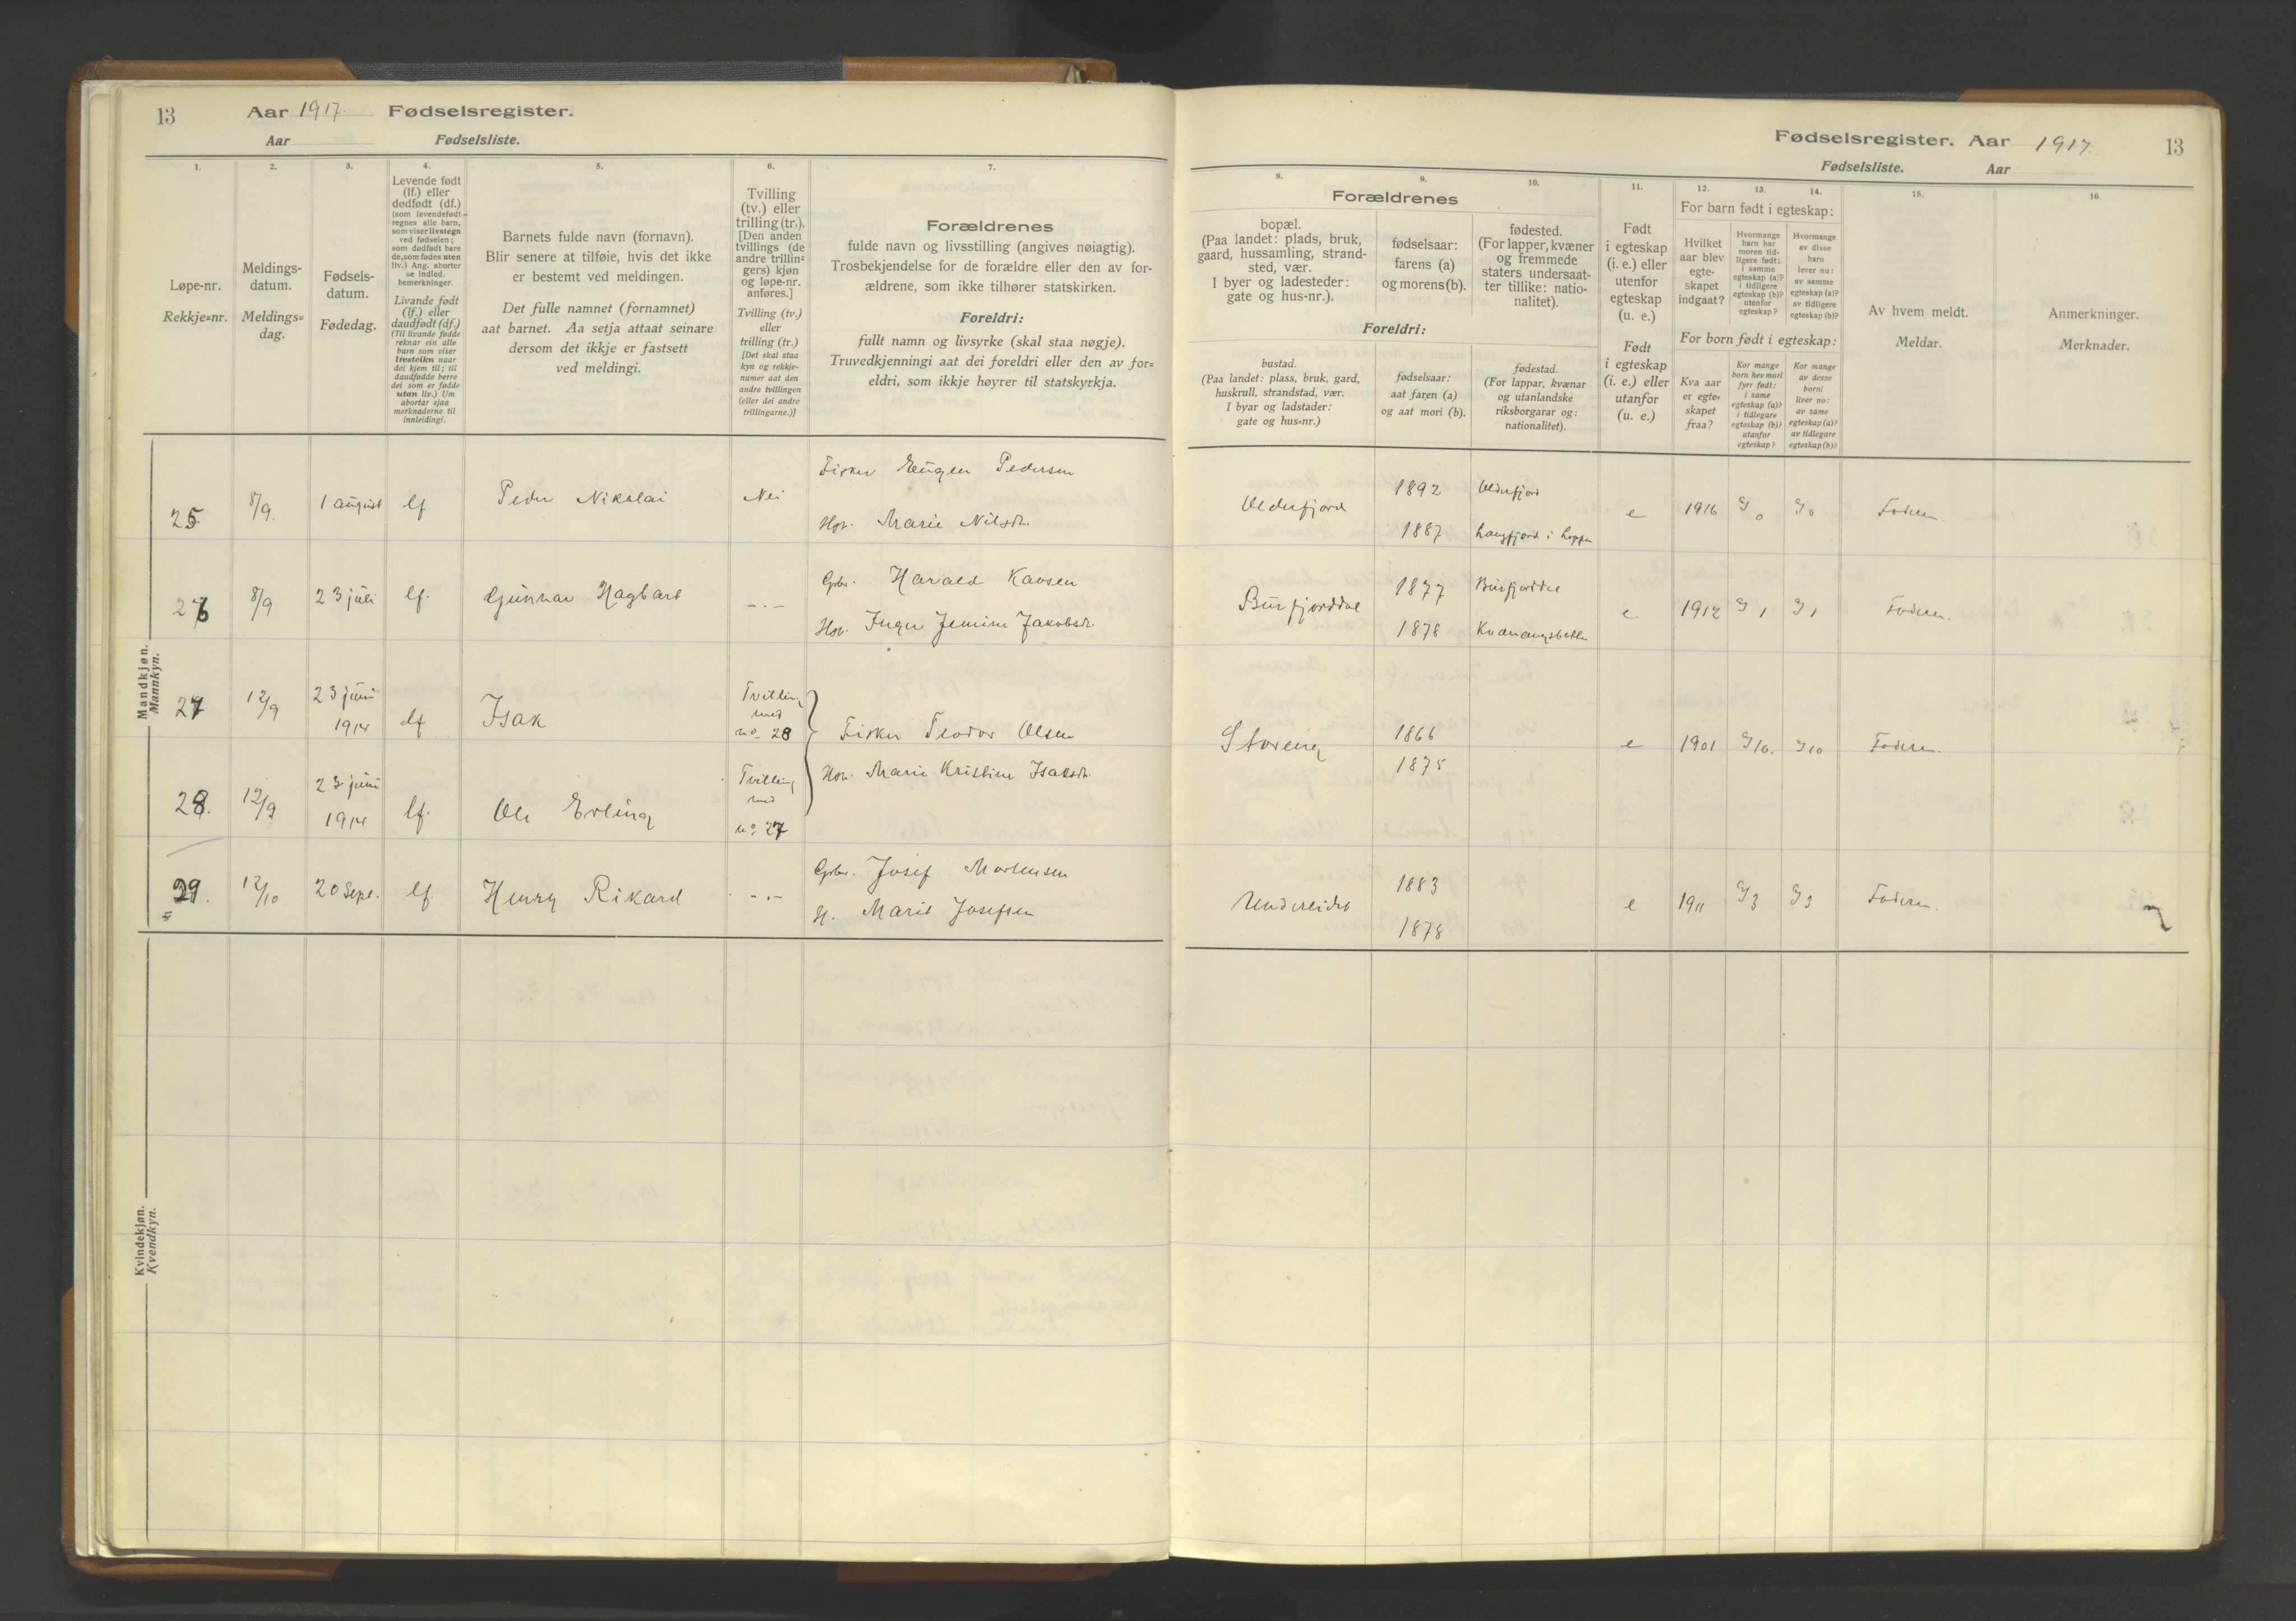 13
Aar 1917. Fødselsregister.
Aar Fødselsliste.
1.
2.
3.
4.
5.
6.
7.
Løpe-nr.
Rekkje=nr.
Meldings-
datum.
Meldings=
dag.
Fødsels-
datum.
Fødedag.
Levende født
(lf.) eller
dødfødt (df.)
(som levendefødt=
regnes alle barn,
som viser livstegn
ved fødselen;
som dødfødt bare
de, som fødes uten
liv.) Ang. aborter
se indled.
bemerkninger.
Livande født
(lf.) eller
daudfødt (df.)
(Til livande fødde
reknar ein alle
barn som viser
livsteikn naar
dei kjem til; til
daudfødde berre
dei som er fødde
utan liv.) Um
abortar sjaa
merknaderne til
innleidingi.
Barnets fulde navn (fornavn).
Blir senere at tilføie, hvis det ikke
er bestemt ved meldingen.
Det fulle namnet (fornamnet)
aat barnet. Aa setja attaat seinare
dersom det ikkje er fastsett
ved meldingi.
Tvilling
(tv.) eller
trilling (tr.).
[Den anden
tvillings (de
andre trillin=
gers) kjøn
og løpe-nr.
anføres.]
Tvilling (tv.)
eller
trilling (tr.)
[Det skal staa
kyn og rekkje-
numer aat den
andre tvillingen
(eller dei andre
trillingarne.)]
Forældrenes
fulde navn og livsstilling (angives nøiagtig).
Trosbekjendelse for de forældre eller den av for-
ældrene, som ikke tilhører statskirken.
Foreldri:
fullt namn og livsyrke (skal staa nøgje).
Truvedkjenningi aat dei foreldri eller den av for=
eldri, som ikkje høyrer til statskyrkja.
Mandkjøn.
Mannkyn.
25. 8/9. 1 august lf Peder Nikolai Nei
Fisker Eugen Pedersen
Hstr. Marie Nilsdr.
26 8/9 23 juli lf. Gunnar Hagbart -.-
Gbr. Harald Kaosen
Hstr. Inger Jemine Jakobsdr.
27 12/9 23 juni
1914 lf Isak
Tvilling
med
no. 28
Fisker Teodor Olsen
Hstr. Marie Kristine Isaksdr.
28. 12/9 23 juni
1914 lf. Ole Erling
Tvilling
med
no. 27
29. 12/10 20 Sept. lf. Henry Rikard -.-
Gbr. Josef Mortensen
H. Marit Josefsen
Kvindekjøn.
Kvendkyn.
Fødselsregister. Aar 1917. 13
Fødselsliste. Aar
8.
9.
10.
11.
12.
13.
14.
15.
16.
Forældrenes
bopæl.
(Paa landet: plads, bruk,
gaard, hussamling, strand-
sted, vær.
I byer og ladesteder:
gate og hus-nr.).
fødselsaar:
farens (a)
og morens (b).
fødested.
(For lapper, kvæner
og fremmede
staters undersaat-
ter tillike: natio-
nalitet).
Foreldri:
bustad.
(Paa landet: plass, bruk, gard,
huskrull, strandstad, vær.
I byar og ladstader:
gate og hus=nr.)
fødselsaar:
aat faren (a)
og aat mori (b).
fødestad.
(For lappar, kvænar
og utanlandske
riksborgarar og:
nationalitet).
Født
i egteskap
(i. e.) eller
utenfor
egteskap
(u. e.)
Født
i egteskap
(i. e.) eller
utanfor
(u. e.)
For barn født i egteskap:
Hvilket
aar blev
egte-
skapet
indgaat?
Hvormange
barn har
moren tid-
ligere født:
i samme
egteskap (a)?
i tidligere
egteskap (b)?
utenfor
egteskap?
Hvormange
av disse
barn
lever nu:
av samme
egteskap (a)?
av tidligere
egteskap (b)?
For born født i egteskap:
Kva aar
er egte=
skapet
fraa?
Kor mange
born hev mori
fyrr født:
i same
egteskap (a)?
i tidlegare
egteskap (b)?
utanfor
egteskap?
Kor mange
av desse
borni
liver no:
av same
egteskap (a)?
av tidlegare
egteskap (b)?
Av hvem meldt.
Meldar.
Anmerkninger.
Merknader.
Olderfjord 1892 Olderfjord
1887 Langfjord i Loppa
e 1916 0 0 Faderen.
Burfjorddal 1877 Burfjorddal
1878 Kvænangsbotn
e. 1912 1 1 Faderen.
Storeng 1866
1875
e 1901 10. 10 Faderen.
Undereidet 1883
1878
e 1911 3 3 Faderen.